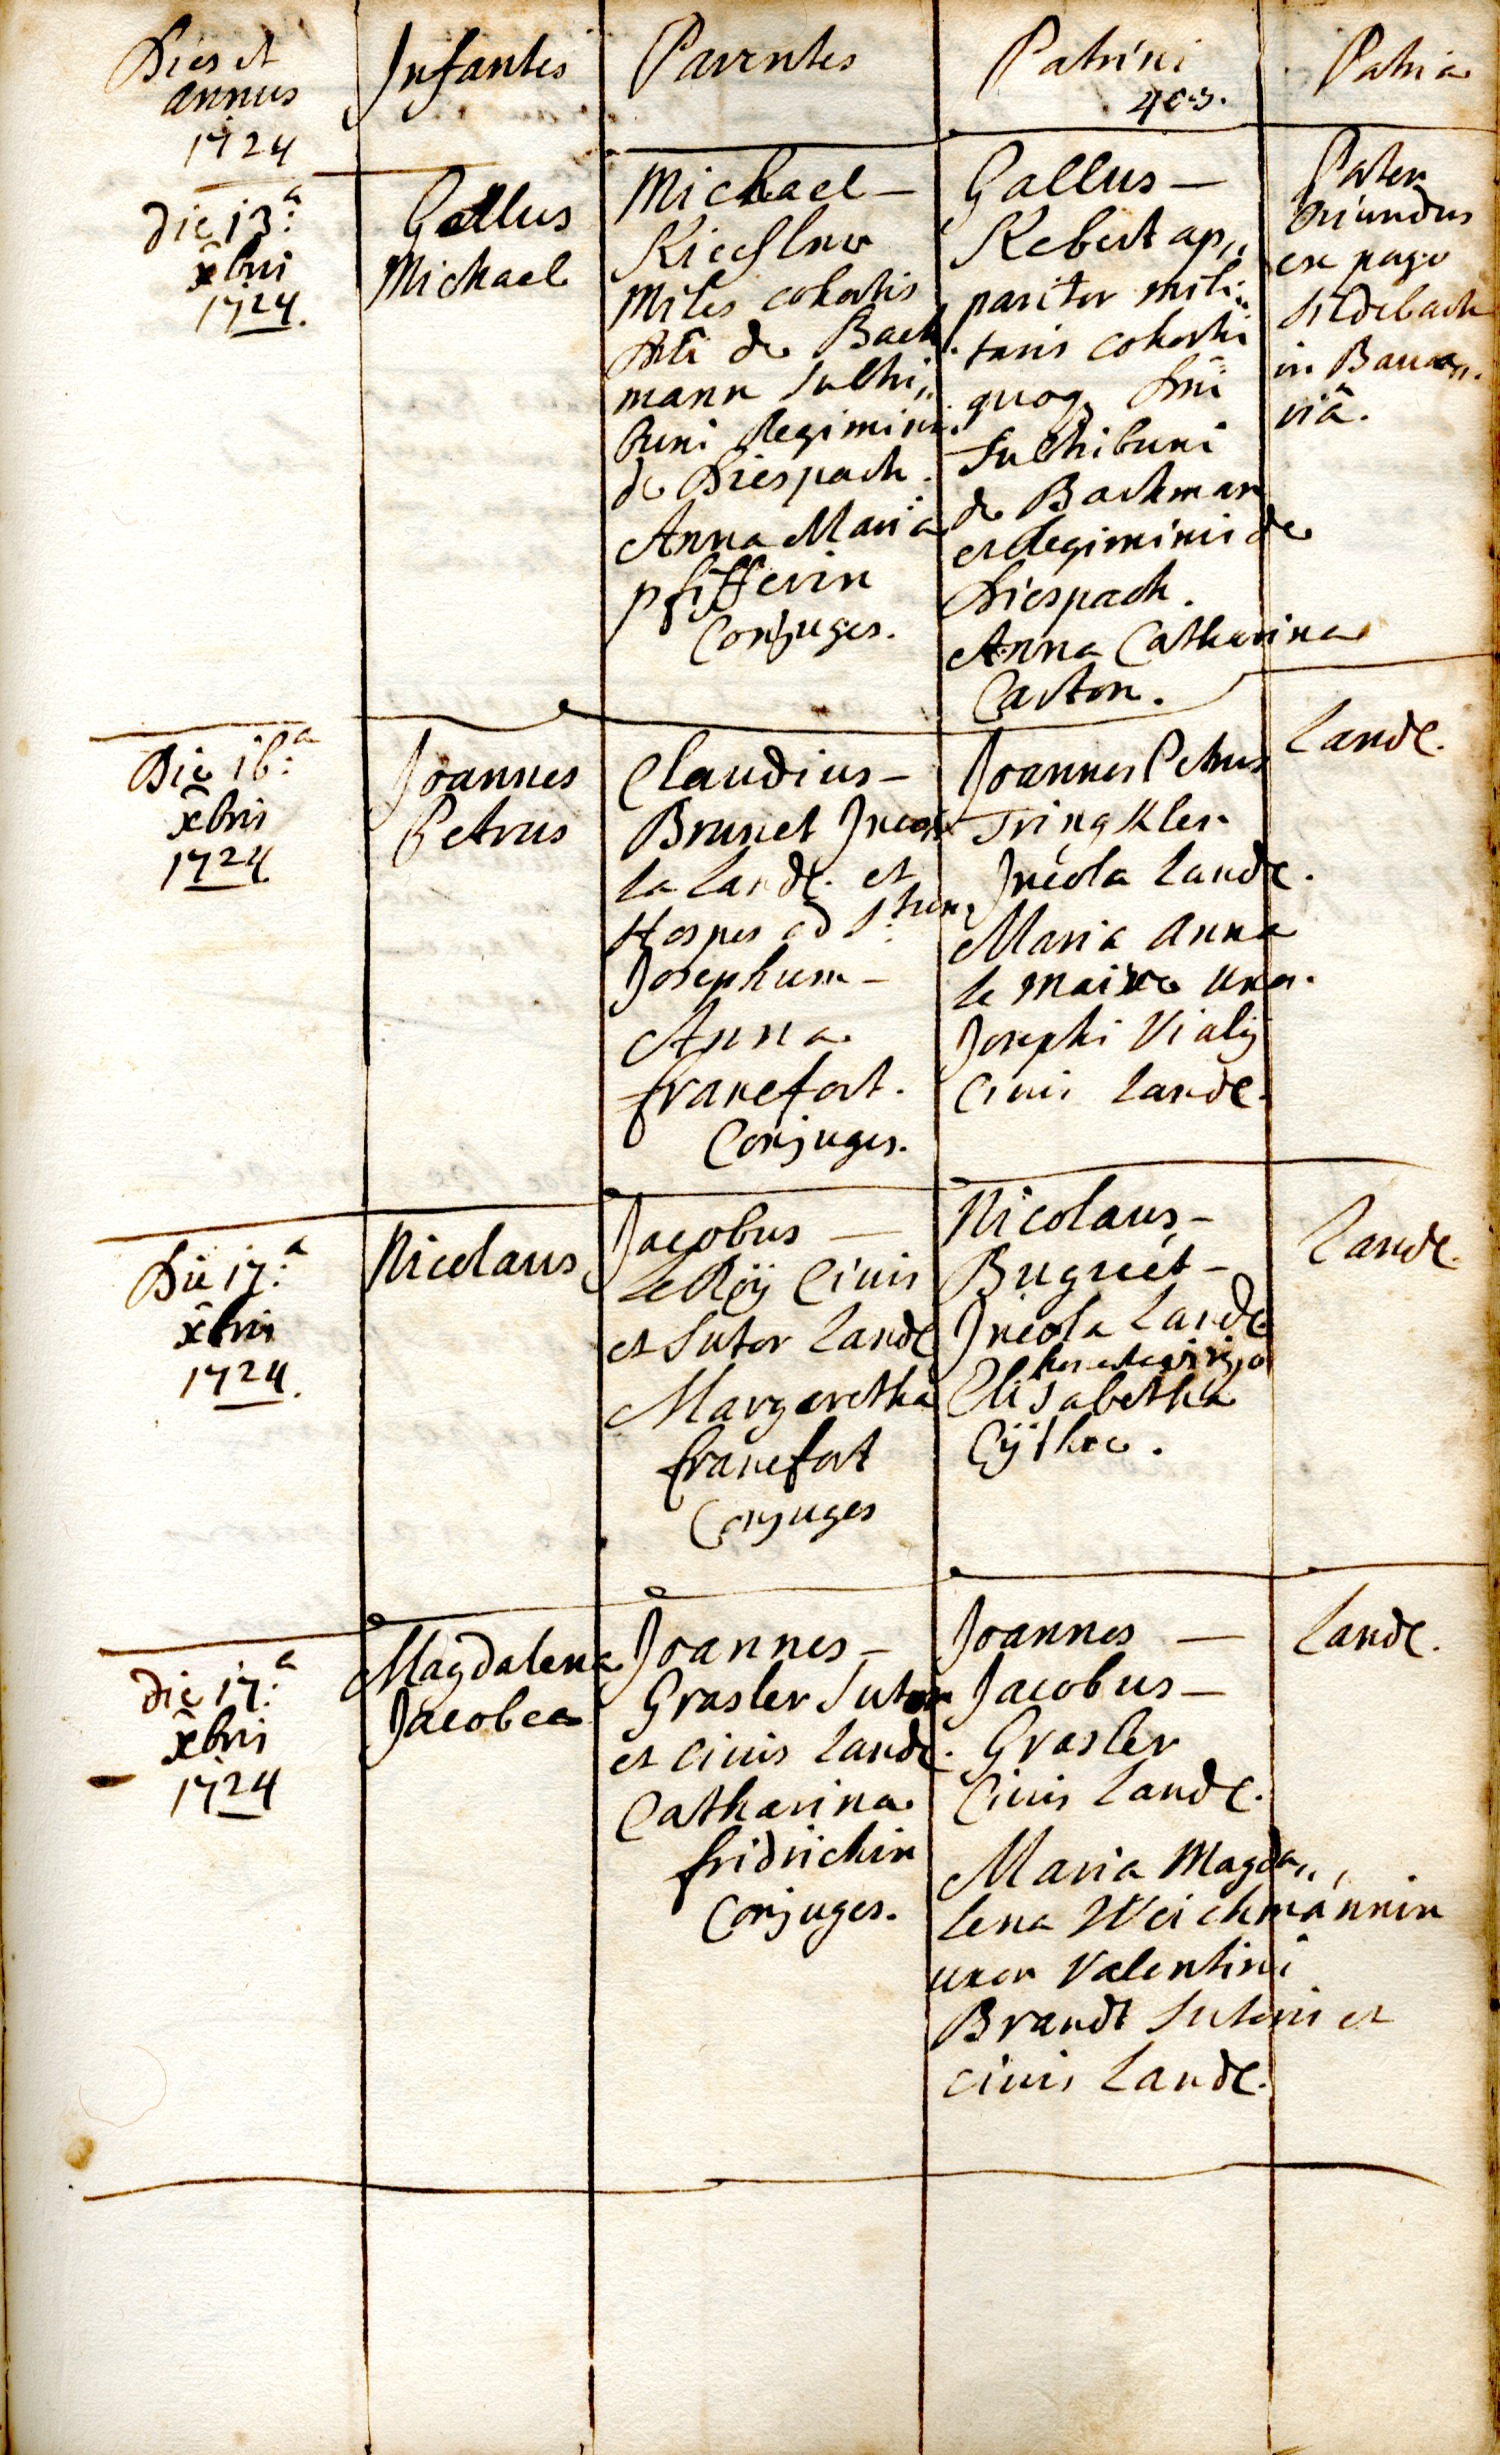 Dies et
annus
1724
Infantes
Parentes
Patrini
403.
Patria
die 13:a
xbris
1724.
Gallus
Michael
Michael —
Kiechlner
Miles cohortis
Dni de Bach
mann
buni Regiminis
de Diespach.
Anna Maria
pfifferin
Conjuges.
Gallus —
Kebert ap„
paritor mili„
taris cohortis
quoq Dni
de Bachman
et Regiminis de
Diespach.
Anna Catharina
Carton.
Pater
Oriundus
ex pago
in Baua„
riâ.
Die 16:a
xbris
1724
Joannes
Petrus
Claudius —
Brunet Inco
la Landc. et
Hospes ad S:
Josephum —
Anna
francfort.
Conjuges.
Joannes Petrus
Tringkler
Incola Landc.
Maria Anna
le maire uxor
Josephi Vialy
Ciuis Landc.
Landc.
Die 17:a
xbris
1724.
Nicolaus
Jacobus —
Le Roÿ Ciuis
et Sutor Landc
Margaretha
francfort
Conjuges
Nicolaus —
Bugnét —
Incola Landc
Elisabetha
Landc.
die 17:a
xbris
1724
Magdalena
Jacobea
Joannes —
Grasler Sutor
et ciuis Landc.
Catharina
fridrichin
Conjuges.
Joannes —
Jacobus —
Grasler
Ciuis Landc.
Maria Magda„
lena Weichmännin
uxor Valentini
Brandt Sutoris et
ciuis Landc.
Landc.